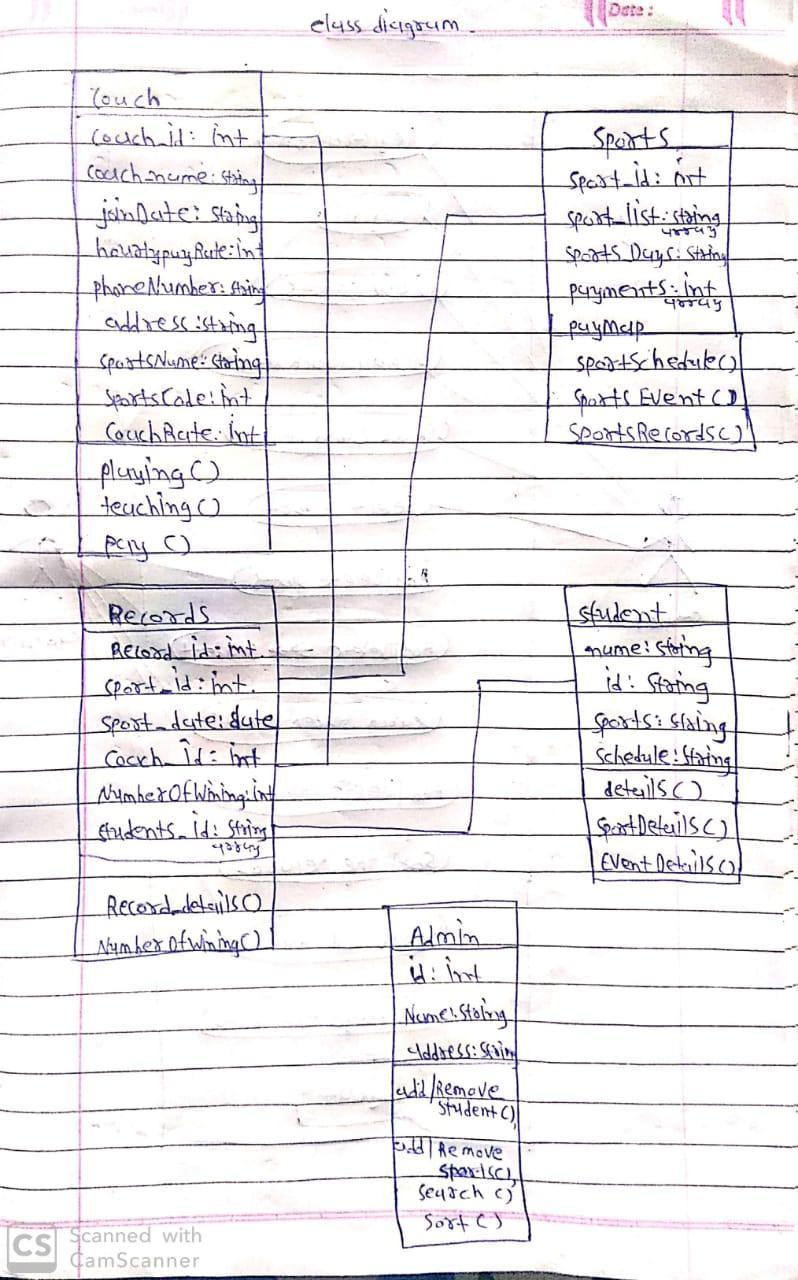 Date :
class diagram
Couch
Couch_id: int
Couch_name: String
joinDate: String
hourlypayRate: int
phoneNumber: String
address: string
SportsName: String
SportsCode: int
CouchRate: int
playing()
teaching()
pay ()
Sports
Sport_id: int
sport_list: string
array
Sports_Days: String
payments: int
array
payMap
sportSchedule()
Sports Event()
SportsRecords()
Records
Record_id: int
Sport_id: int.
Sport_date: date
Coach_id: int
NumberOfWining: int
students_id: String
array
Record_details()
NumberOfWining()
student
name: String
id: String
Sports: String
Schedule: String
details()
SportDetails()
Event Details()
Admin
id: int
Name: String
address: String
add/Remove
Student()
add/Remove
Sports()
Search ()
Sort ()
CS Scanned with
CamScanner